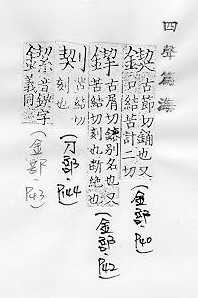 四聲篇海
鍥 古節切鎌也又
口結苦計二切
(金部·P40)
鍥 古屑切鎌別名也又
苦結切刻也斷絶也
(金部·P42)
契 苦結切
刻也
(刀部·P144)
音鍥字
義同
(金部·P43)